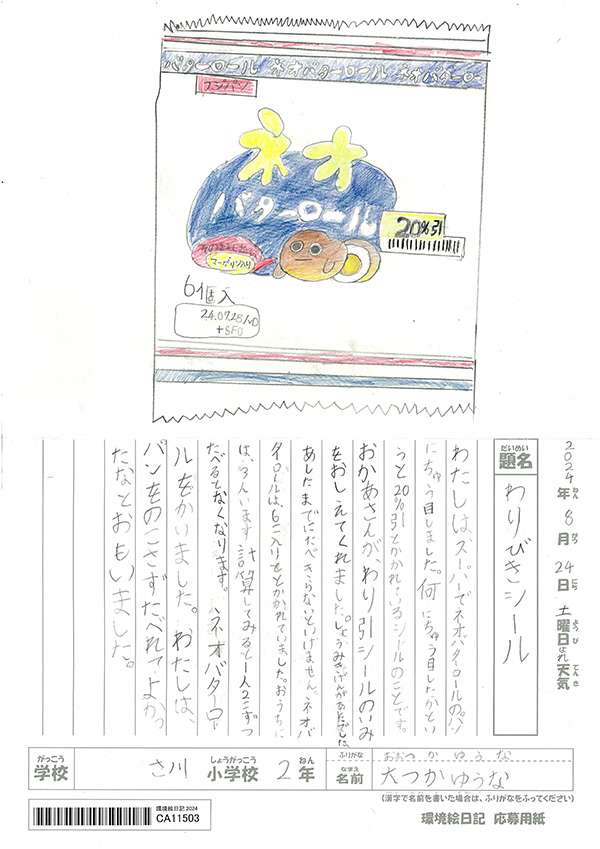 バターロール ネオバターロール ネオバターロ
フジパン
ネオ
バターロール
20%引
マーガリン入り
6個入
24.07.28/ND
+SFO
2024年ねん 8月がつ 24日にち 土曜日ようび はれ天気てんき
題名だいめい わりびきシール
わたしは、スーパーでネオバタイロールのパン
にちゅう目しました。何にちゅう目したかとい
うと20%引とかかれているシールのことです。
おかあさんが、わり引シールのいみ
をおしえてくれました。しょうみきげんがあしたでした。
あしたまでにたべきらないといけません。ネオバ
タイロールは、6こ入りとかかれていました。おうちに
は、3人います。計算してみると一人2こずつ
たべるとなくなります。ネオバターロー
ルをかいました。わたしは、
パンをのこさずたべれてよかっ
たなとおもいました。
がっこう 学校 さ川 しょうがっこう 小学校 2 ねん 年
ふりがな おおつかゆうな
なまえ 名前 大つかゆうな
(漢字で名前を書いた場合は、ふりがなをふってください)
環境絵日記2024
CA11503
環境絵日記 応募用紙